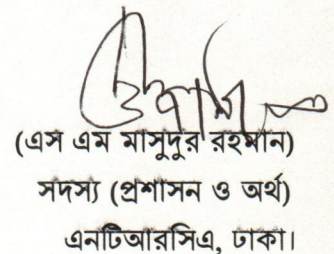 (এস এম মাসুদুর রহমান)
সদস্য (প্রশাসন ও অর্থ)
এনটিআরসিএ, ঢাকা।